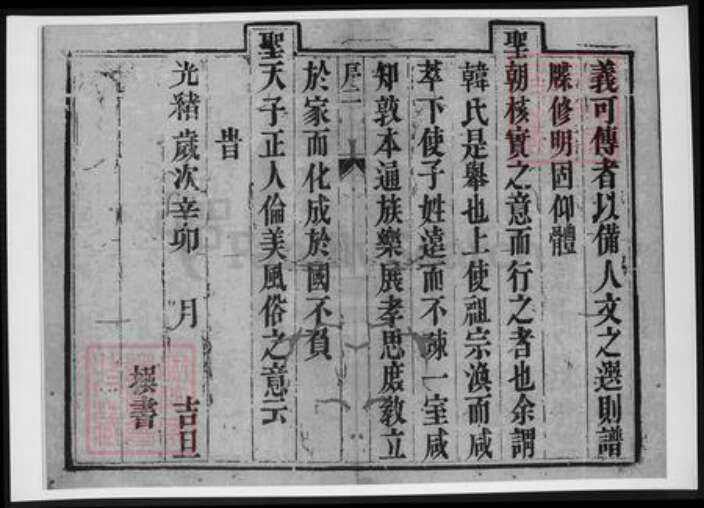 義可傳者以備人文之選則譜
牒修明固仰體
聖朝核實之意而行之者也余謂
韓氏是舉也上使祖宗渙而咸
萃下使子姓遠而不疎一室咸
知敦本通族樂展孝思庶教立
序二
於家而化成於國不負
聖天子正人倫美風俗之意云
旹
光緒歲次辛卯 月 吉旦
撰書